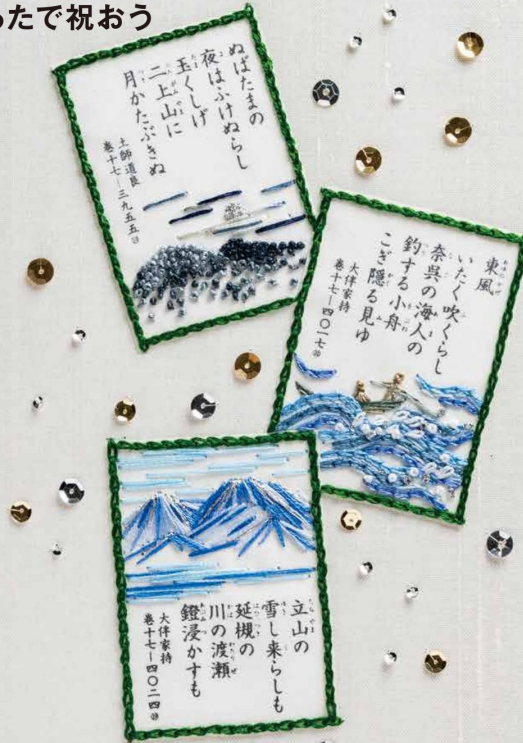 ったで祝おう
ぬばたまの
夜はふけぬらし
玉くしげ
二上山に
月かたぶきぬ
土師道良
巻十七―三九五五
東風
いたく吹くらし
奈呉の海人の
釣する小舟
こぎ隠る見ゆ
大伴家持
巻十七―四〇一七
立山の
雪し来らしも
延槻の
川の渡瀬
鐙浸かすも
大伴家持
巻十七―四〇二四